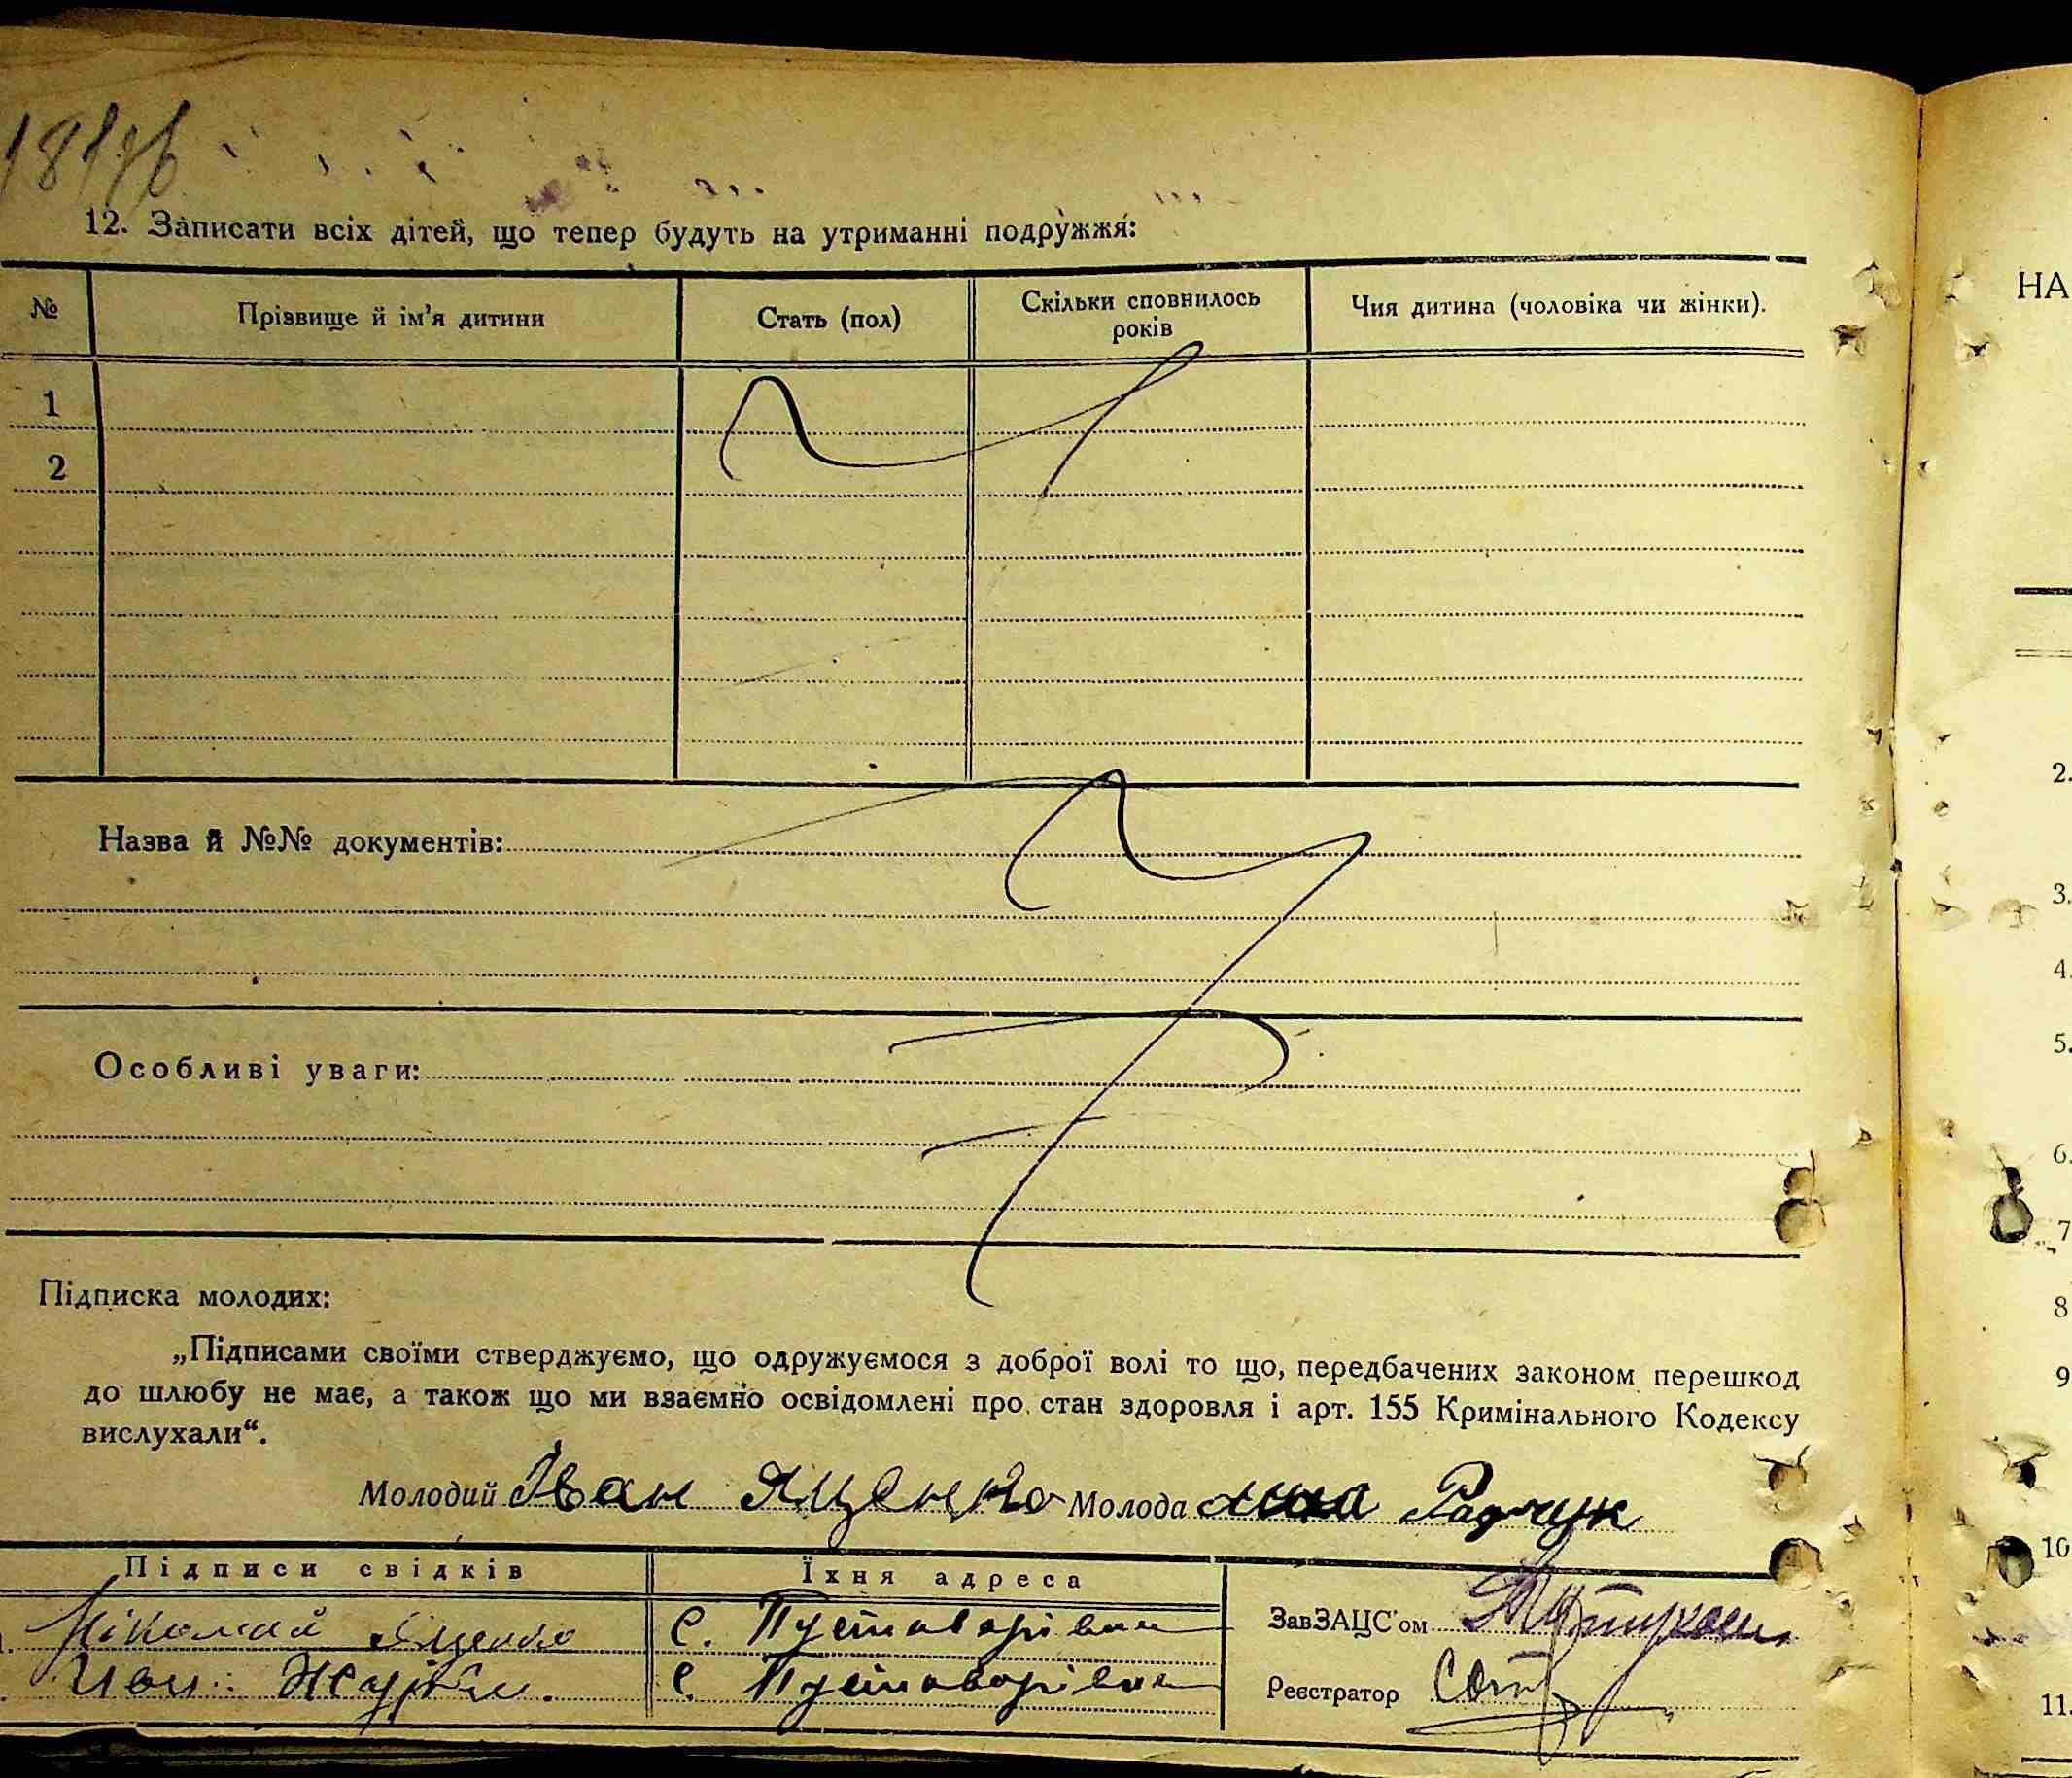 12. Записати всіх дітей, що тепер будуть на утриманні подружжя:
№ Прізвище й ім'я дитини Стать (пол) Скільки сповнилось років Чия дитина (чоловіка чи жінки).
1
2
Назва й №№ документів:
Особливі уваги:
Підписка молодих:
„Підписами своїми стверджуємо, що одружуємося з доброї волі то що, передбачених законом перешкод
до шлюбу не має, а також що ми взаємно освідомлені про стан здоровля і арт. 155 Кримінального Кодексу
вислухали“.
Молодий Іван Яценко Молода Радчук
Підписи свідків Їхня адреса
Яценко с. Пустоварівка ЗавЗАЦС'ом
с. Пустоварівка Реєстратор
НА
2.
3.
4.
5.
6.
7
8
9
10
11.